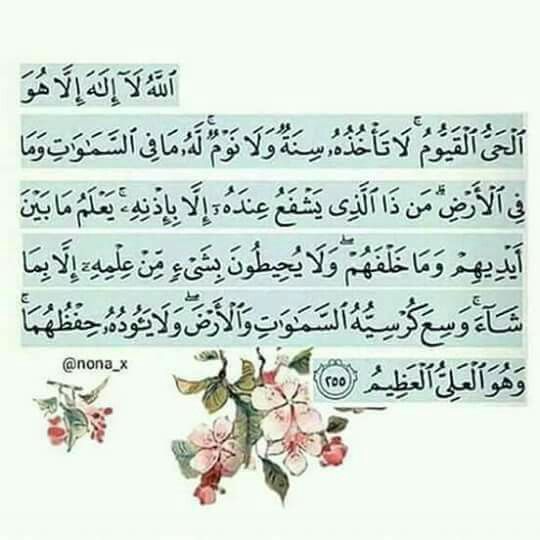 ٱللَّهُ لَآ إِلَٰهَ إِلَّا هُوَ
ٱلْحَىُّ ٱلْقَيُّومُ ۚ لَا تَأْخُذُهُۥ سِنَةٌ وَلَا نَوْمٌ ۚ لَّهُۥ مَا فِى ٱلسَّمَٰوَٰتِ وَمَا
فِى ٱلْأَرْضِ ۗ مَن ذَا ٱلَّذِى يَشْفَعُ عِندَهُۥٓ إِلَّا بِإِذْنِهِۦ ۚ يَعْلَمُ مَا بَيْنَ
أَيْدِيهِمْ وَمَا خَلْفَهُمْ ۖ وَلَا يُحِيطُونَ بِشَىْءٍ مِّنْ عِلْمِهِۦٓ إِلَّا بِمَا
شَآءَ ۚ وَسِعَ كُرْسِيُّهُ ٱلسَّمَٰوَٰتِ وَٱلْأَرْضَ ۖ وَلَا يَـُٔودُهُۥ حِفْظُهُمَا ۚ
وَهُوَ ٱلْعَلِىُّ ٱلْعَظِيمُ ٢٥٥
@nona_x